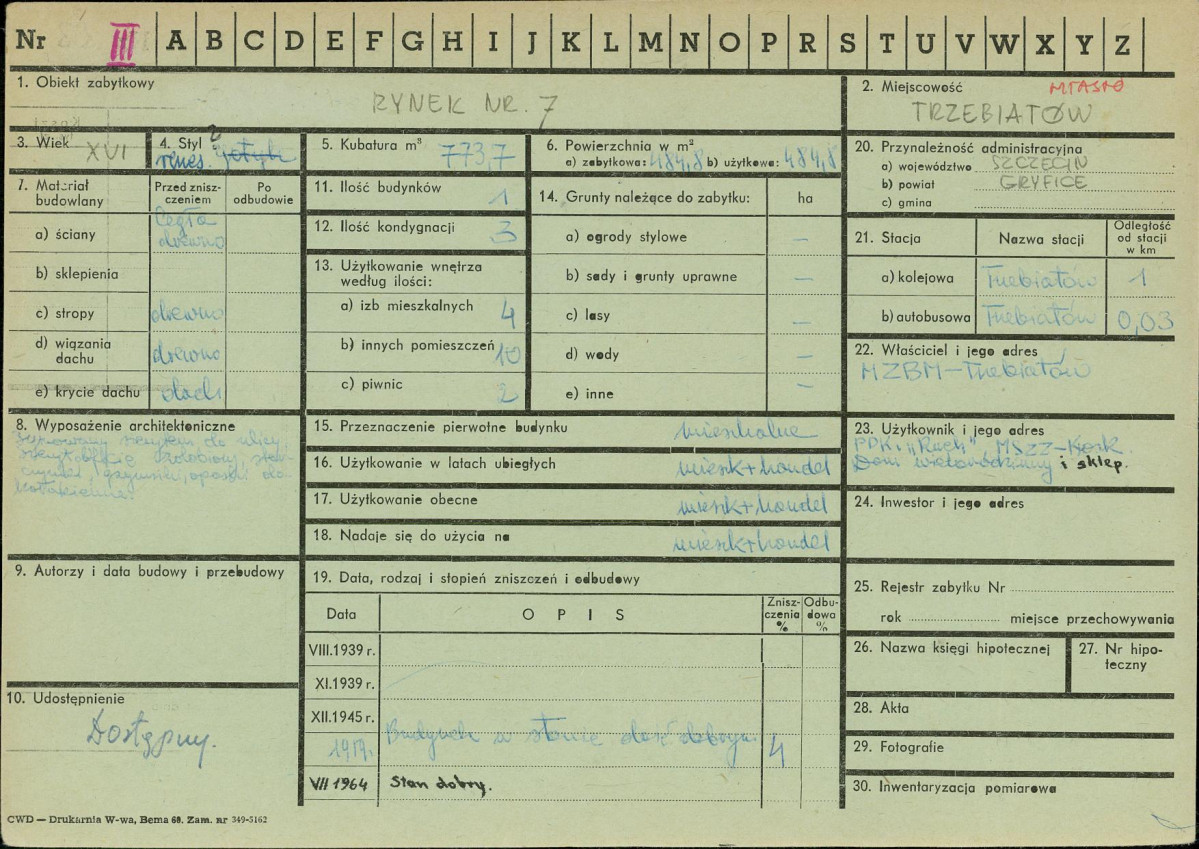 Nr III A B C D E F G H I J K L M N O P R S T U V W X Y Z
1. Obiekt zabytkowy
RYNEK NR. 7
2. Miejscowość MIASTO
TRZEBIATÓW
3. Wiek XVI
4. Styl ?
renes. gotyk
5. Kubatura m³ 773,7
6. Powierzchnia w m²
a) zabytkowa: 484,8 b) użytkowa: 484,8
20. Przynależność administracyjna
a) województwo SZCZECIN
b) powiat GRYFICE
c) gmina
7. Materiał budowlany
Przed zniszczeniem
Po odbudowie
a) ściany Cegła drewno
b) sklepienia
c) stropy drewno
d) wiązania dachu drewno
e) krycie dachu dach.
11. Ilość budynków 1
12. Ilość kondygnacji 3
13. Użytkowanie wnętrza według ilości:
a) izb mieszkalnych 4
b) innych pomieszczeń 10
c) piwnic 2
14. Grunty należące do zabytku: ha
a) ogrody stylowe –
b) sady i grunty uprawne –
c) lasy –
d) wody –
e) inne –
21. Stacja Nazwa stacji Odległość od stacji w km
a) kolejowa Trzebiatów 1
b) autobusowa Trzebiatów 0,03
22. Właściciel i jego adres
MZBM – Trzebiatów
8. Wyposażenie architektoniczne
szczytem do ulicy,
gzymsiki, opaski
15. Przeznaczenie pierwotne budynku mieszkalne
16. Użytkowanie w latach ubiegłych mieszk+handel
17. Użytkowanie obecne mieszk+handel
18. Nadaje się do użycia na mieszk+handel
23. Użytkownik i jego adres
PDK i „Ruch"
Dom wielorodzinny i sklep.
24. Inwestor i jego adres
9. Autorzy i data budowy i przebudowy
19. Data, rodzaj i stopień zniszczeń i odbudowy
Data OPIS Zniszczenia % Odbudowa %
VIII.1939 r.
XI.1939 r.
XII.1945 r.
Budynek w stanie dość dobrym. 4
VII 1964 Stan dobry.
25. Rejestr zabytku Nr
rok miejsce przechowywania
26. Nazwa księgi hipotecznej
27. Nr hipoteczny
28. Akta
29. Fotografie
30. Inwentaryzacja pomiarowa
10. Udostępnienie
Dostępny.
CWD — Drukarnia W-wa, Bema 60. Zam. nr 349-5162